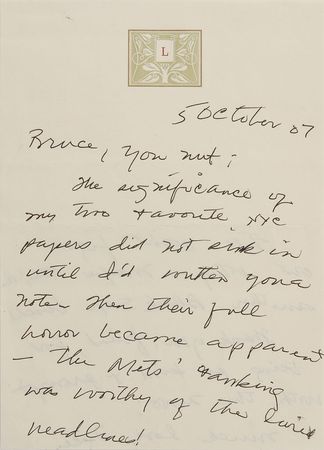 L
5 October 07
Bruce, you nut;
The significance of
my two favorite NYC
papers did not sink in
until I'd written you a
note. Then their full
horror became apparent
— The Mets' tanking
was worthy of the lurid
headlines!